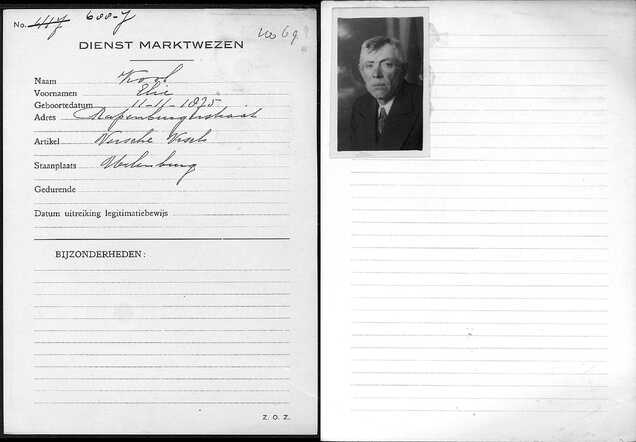 No. 417 600-J
No 69
DIENST MARKTWEZEN
Naam Kool
Voornamen Elie
Geboortedatum 11-11-1875
Adres Rapenburgerstraat
Artikel Versche Visch
Staanplaats Uilenburg
Gedurende
Datum uitreiking legitimatiebewijs
BIJZONDERHEDEN:
Z. O. Z.